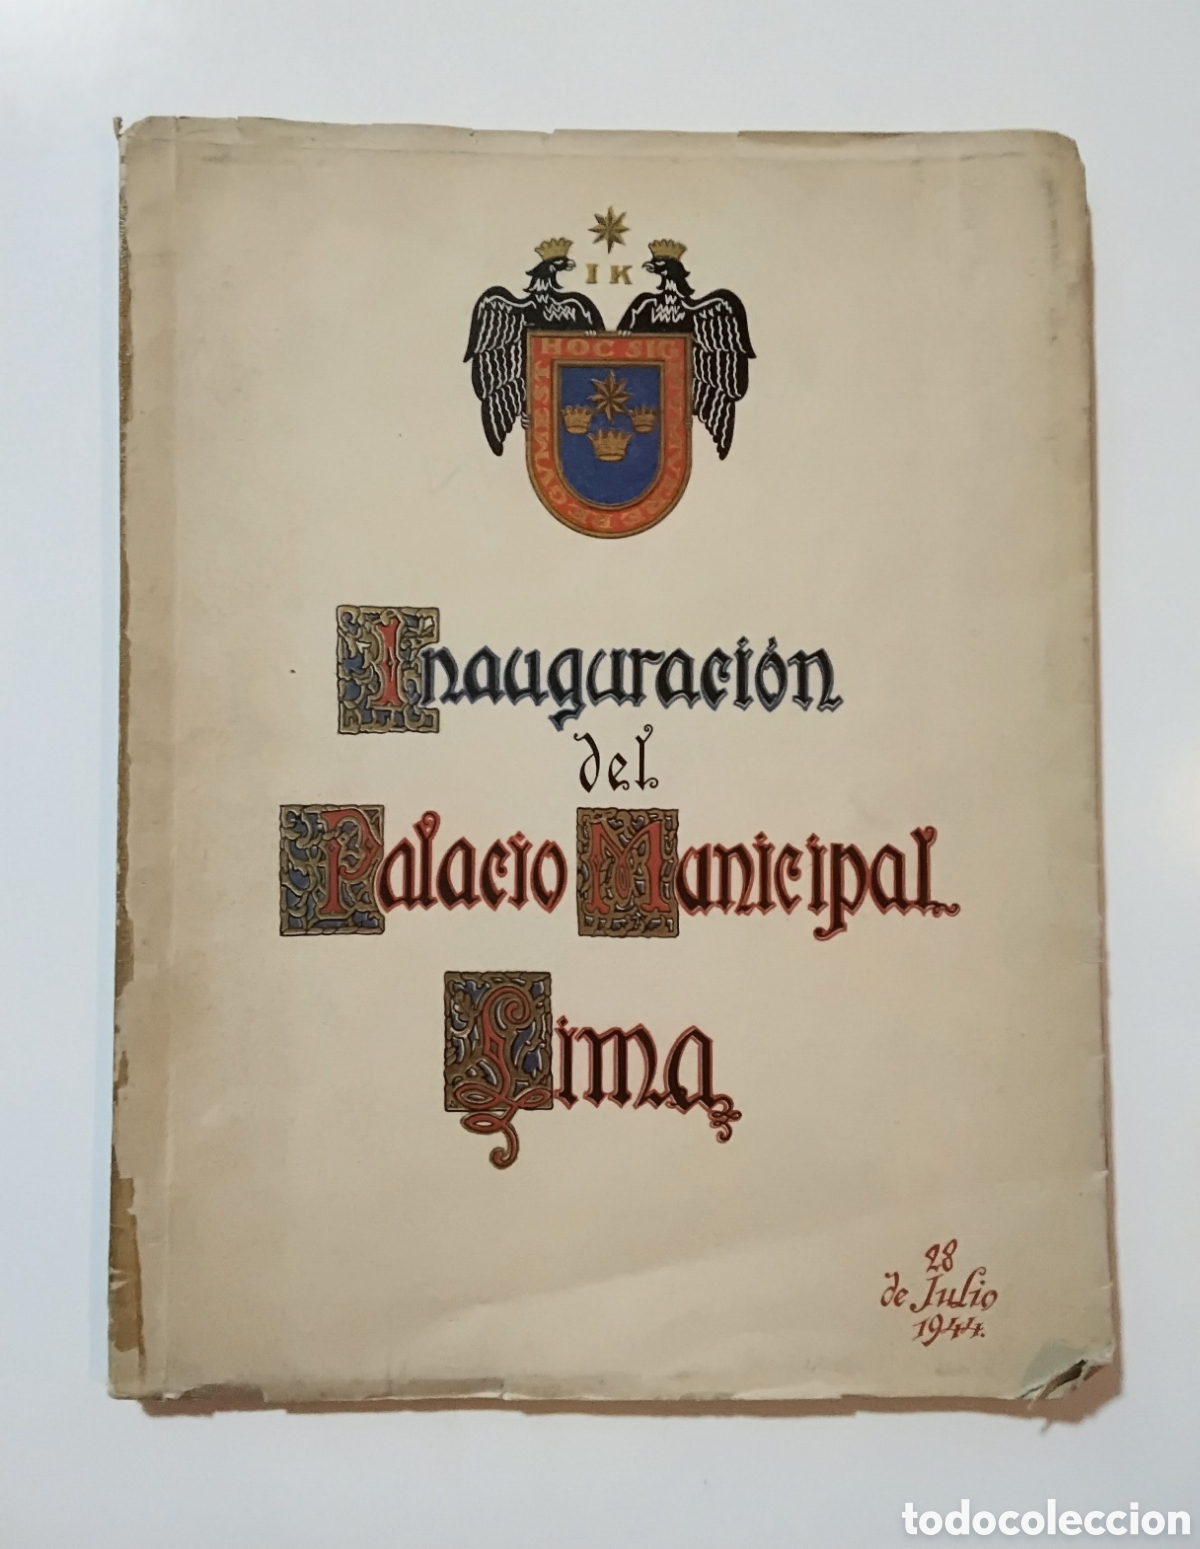 I K
HOC SIG
Inauguración
del
Palacio Municipal
Lima
28
de Julio
1944.
todocoleccion